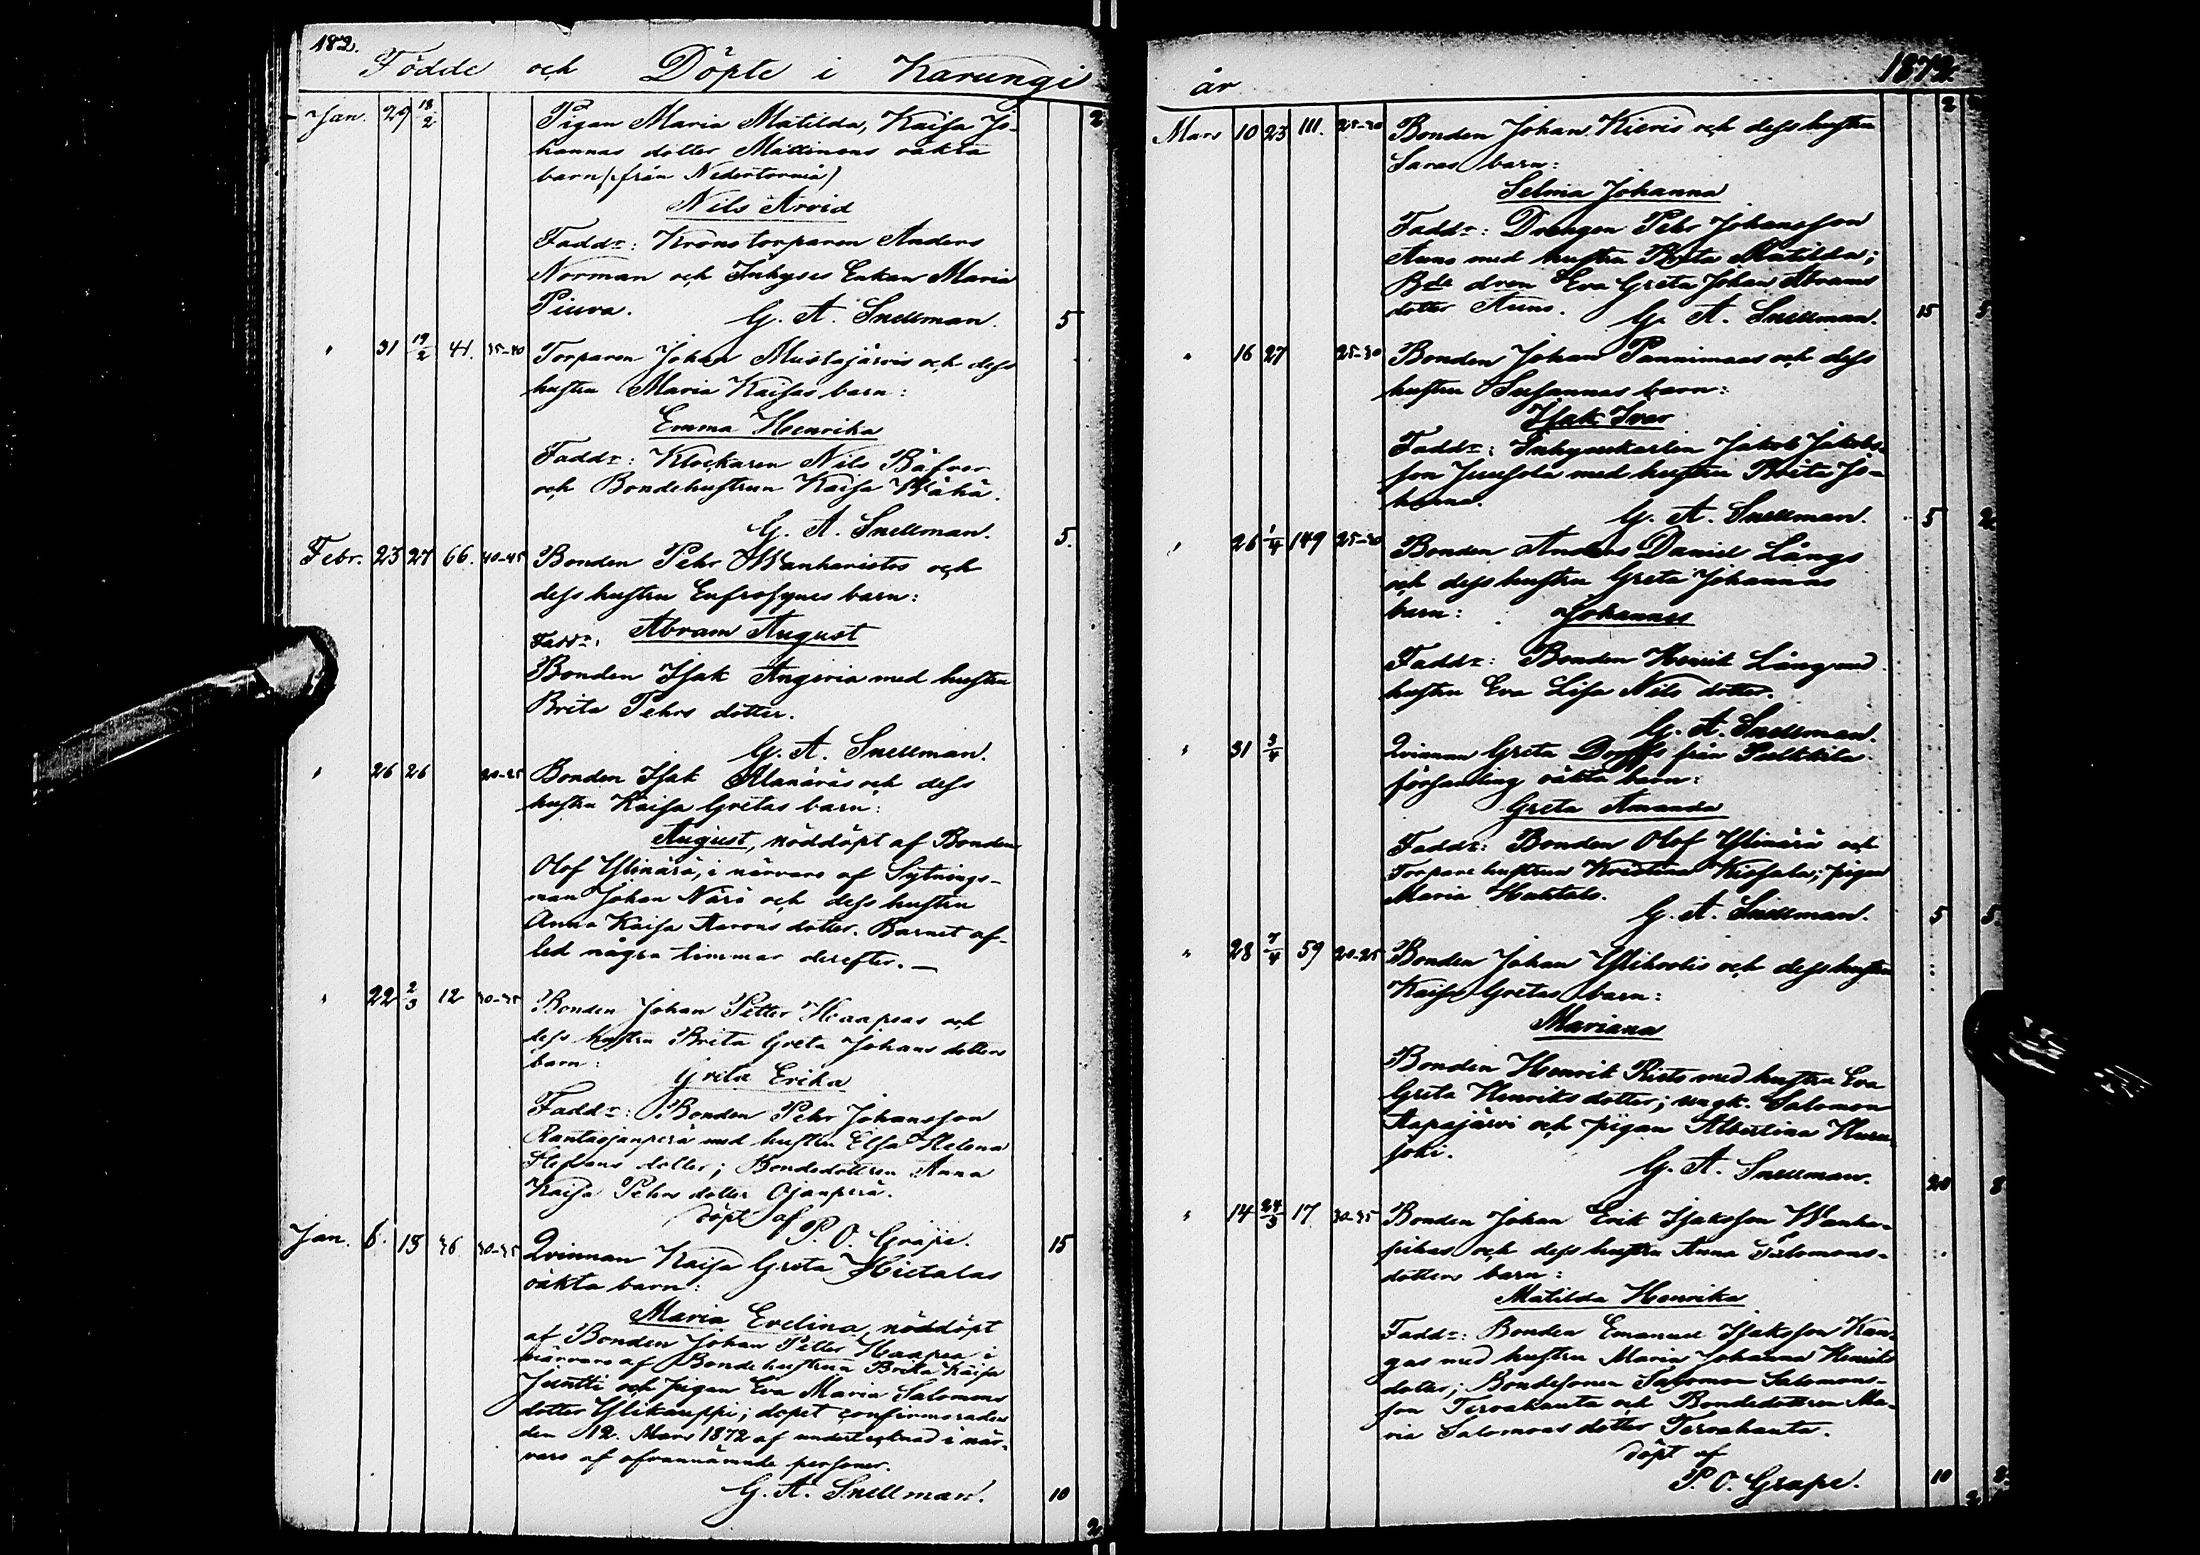 182.
Födde och Döpte i Karungi
Jan. 29 18/2 Pigan Maria Matilda, Kaisa Jo-
hannas dotter Mattinens oäkta
barn (från Nedertorneå)
Nils Arvid
Faddr: Kronotorparen Anders
Norman och Inhyses Enkan Maria
Piuva.
G. A. Snellman. 5
" 31 19/2 41. 35-40 Torparen Johan Mustajärvis och dess
hustru Maria Kaisas barn:
Emma Henrika
Faddr: Klockaren Nils Bäfver
och Bondehustrun Kaisa Wähä.
G. A. Snellman. 5.
Febr. 23 27 66. 40-45 Bonden Pehr Wanharistos och
dess hustru Eufrosynes barn:
Faddr: Abram August
Bonden Isak Angeria med hustru
Brita Pehrs dotter.
G. A. Snellman.
" 26 26 20-25 Bonden Isak Alanäräs och dess
hustru Kaisa Gretas barn:
August, nöddöpt af Bonden
Olof Ylinärä, i närvaro af Sytnings-
man Johan Närä och dess hustru
Anna Kaisa Aarons dotter. Barnet af-
led några timmar derefter. —
" 22 2/3 12 30-35 Bonden Johan Petter Haapeas och
dess hustru Brita Greta Johans dotters
barn:
Greta Erika
Faddr: Bonden Pehr Johansson
Rantaojanperä med hustru Elsa Helena
Stefans dotter; Bondedottren Anna
Kaisa Pehrs dotter Ojanperä.
döpt af
P. O. Grape. 15
Jan. 6. 13 36 30-35 Qvinnan Kaisa Greta Hietalas
oäkta barn:
Maria Evelina, nöddöpt
af Bonden Johan Petter Haapea i
närvaro af Bondehustrun Brita Kaisa
Juntti och pigan Eva Maria Salomons
dotter Ylikauppi; dopet confirmerades
den 12. Mars 1872 af undertecknad i när-
varo af ofvannämnde personer.
G. A. Snellman. 10
2
år 1872.
2
Mars 10 23 111. 25-30 Bonden Johan Kieris och dess hustru
Saras barn:
Selma Johanna
Faddr: Drengen Pehr Johansson
Auno med hustru Brita Matilda;
Bde dren Eva Greta Johan Abrams
dotter Auno.
G. A. Snellman. 15 5
" 16 27 25-30 Bonden Johan Pannimaas och dess
hustru Susannas barn:
Isak Ivar
Faddr: Inhyseskarlen Jakob Jakobs-
son Juusola med hustru Brita Jo-
hanna.
G. A. Snellman. 5 2
" 26 1/4 149 25-30 Bonden Anders Daniel Långs
och dess hustru Greta Johannas
barn: Johannes
Faddr: Bonden Henrik Lång med
hustru Eva Lisa Nils dotter.
G. A. Snellman.
" 31 3/4 Qvinnan Greta från
församling oäkta barn:
Greta Amanda
Faddr: Bonden Olof Ylinärä och
Torpare hustrun Kristina; pigan
Maria
G. A. Snellman. 5 5
" 28 7/4 59 20-25 Bonden Johan och dess hustru
Kaisa Gretas barn:
Mariana
Bonden Henrik med hustru Eva
Greta Henriks dotter; ungk. Salomon
Aapajärvi och pigan Albertina
joki.
G. A. Snellman. 20 8
" 14 24/3 17 30-35 Bonden Johan Erik Isaksson Wanha-
pihas och dess hustru Anna Salomons-
dotters barn:
Matilda Henrika
Faddr: Bonden Emanuel Isaksson Kan-
gas med hustru Maria Johanna Henriks
dotter; Bondesonen Salomon Salomons-
son Tervahauta och Bondedottren Ma-
ria Salomons dotter Tervahauta.
döpt af
P. O. Grape. 10 8
2